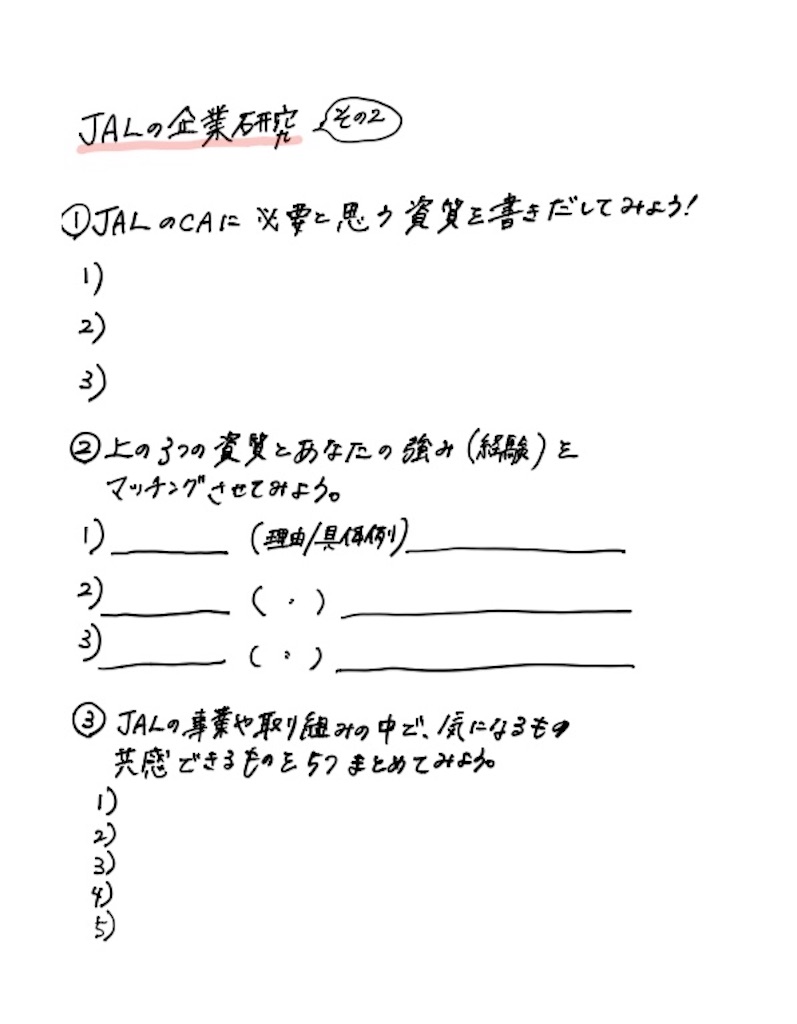 JALの企業研究 その2
①JALのCAに必要と思う資質を書きだしてみよう!
1)
2)
3)
②上の3つの資質とあなたの強み(経験)を
マッチングさせてみよう。
1) (理由/具体例)
2) ( 〃 )
3) ( 〃 )
③JALの事業や取り組みの中で、気になるもの
共感できるものを5つまとめてみよう。
1)
2)
3)
4)
5)